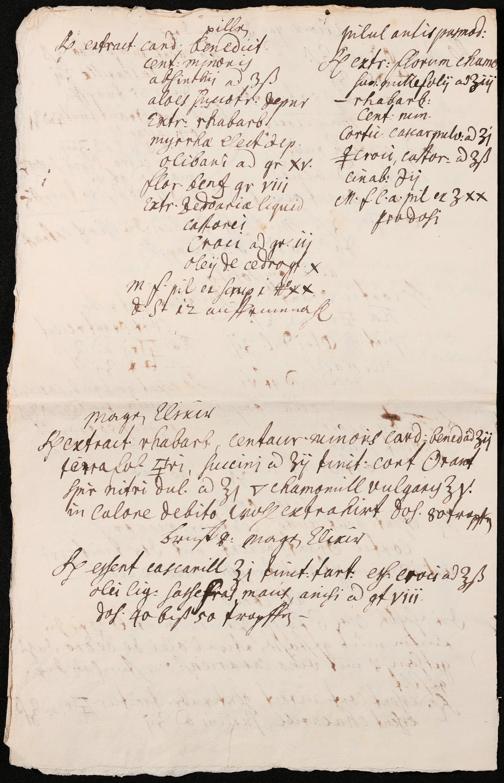 pillul
℞ extract card, benedict
cent: minoris
absinthii ad ʒß
aloes succotr: depur
Extr: rhabarb
myrrhæ Elect dep
olibani ad gr xv.
flor: benz gr viii
Extr: Zedoariæ liquid
castorei
Croci ad gr iij
olej de cedro gt x
m f pil ex scrup i N° xx
d St 12 auff einmahl
pilul antispasmod:
℞ extr: florum chamo
sum: millefolij ad ʒiij
rhabarb:
Cent min.
Cortic cascar pulv: ad ʒj
croci, castor: ad ʒß
cinab: ℈ij
M. f. l. a. pil ex ʒ xx
pro dosi
mag, Elixir
℞ extract rhabarb, centaur minoris card, bened ad ʒij
terra fol ♃ri, succini ad ʒij tinct: cort Orant
spir nitri dul. ad ʒj ▽ chamomill vulgaris ʒv.
in calore debito extrahirt dos. 80 tropffen
brust & mag, Elixir
℞ essent cascarill ʒj tinct: tart: ess. croci ad ʒß
olei lig: sassefras, macis, anisi ad gt viii
dos. 40 biß 50 tropffen